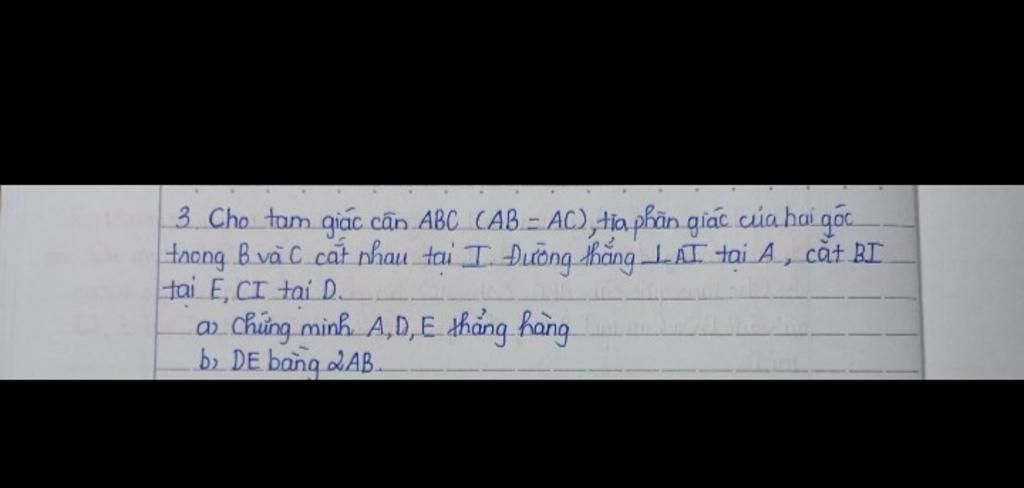 3 Cho tam giác cân ABC (AB = AC), tia phân giác của hai góc
trong B và C cắt nhau tại I. Đường thẳng ⊥ AI tại A, cắt BI
tại E, CI tại D.
a) Chứng minh A, D, E thẳng hàng
b) DE bằng 2AB.